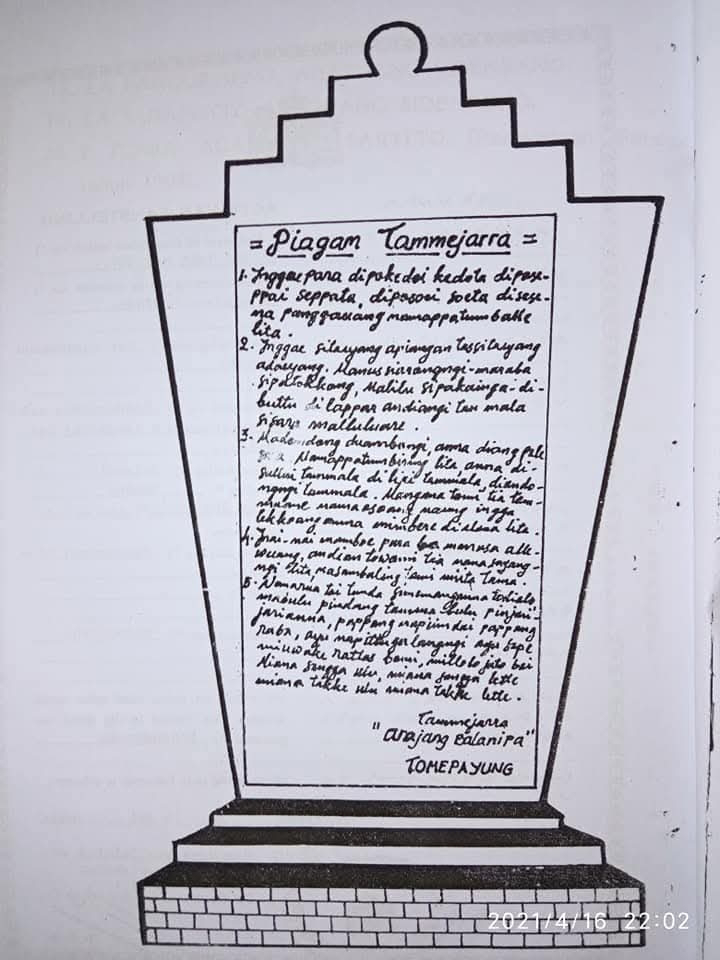 = Piagam Tammejarra =
1. Inggae para dipokedoi kedota dipase-
ppai seppata, diposoei soeta disese-
na panggauang mamappatumballe
lita.
2. Inggae silasyang apiangan tassilasyang
adaeyang. Manus siraanongngi-maraba
sipatokkong, Malilu sipakainga-di-
buttu di lappar andiangi tau mala
sisara malluluare.
3. Madondong duambongi, anna diang pole
Mamappatumbiring lita anna di-
sulluri tammala di lipi tammala, diando-
ngngi tammala. Mangana tomi tia tem-
maúng ingga
di lita.
4. Inai-nai mamboe para
andian towomi tia nana sayang-
ngi lita, tomi mita Tama.
5. Namarua toi tunda sumamanganna todiolo
mabulu pindang tamma bulu pinjari-
jarianna, pappang napiundai pappang
raba, ayu ayu sipe
miuwake rattas bomi, millolo joto boi
Miana sungga ulu, miana sungga lette
miana takke ulu miana takke lette.
Tammejarra
"arajang Balanipa"
TOMEPAYUNG
2021/4/16 22:02